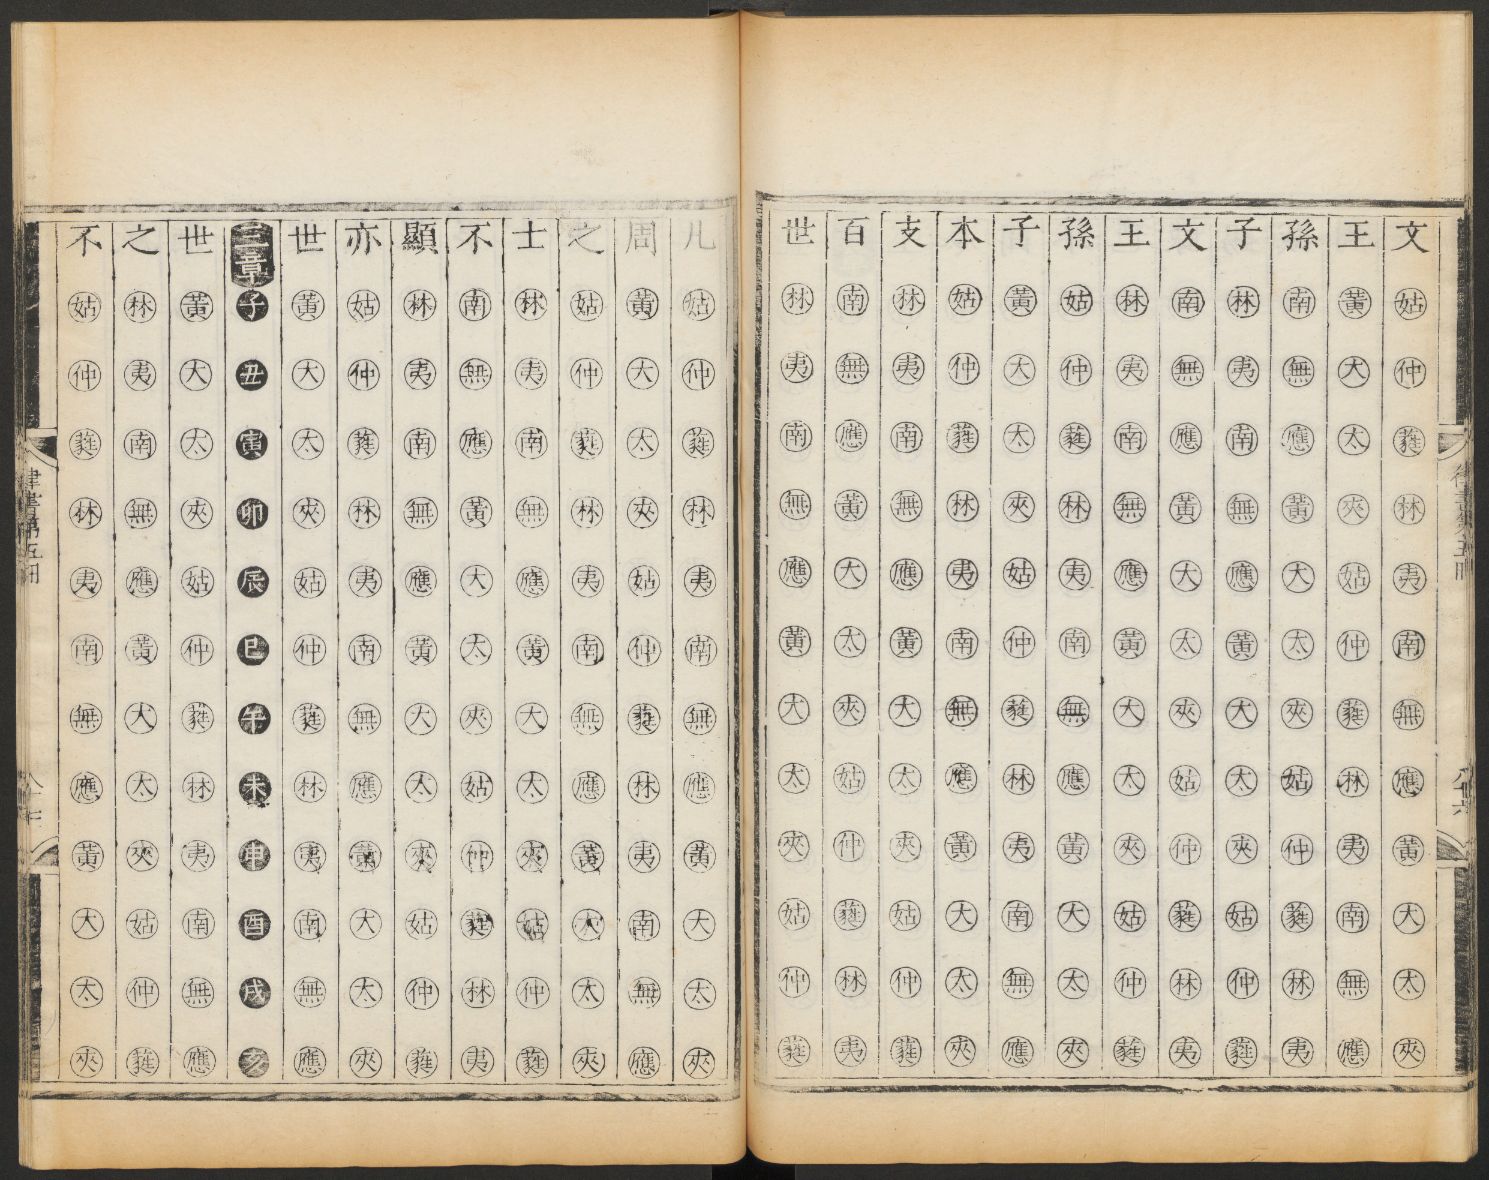 文姑仲蕤林夷南無應黃大太夾
王黃大太夾姑仲蕤林夷南無應
孫南無應黃大太夾姑仲蕤林夷
子林夷南無應黃大太夾姑仲蕤
文南無應黃大太夾姑仲蕤林夷
王林夷南無應黃大太夾姑仲蕤
孫姑仲蕤林夷南無應黃大太夾
子黃大太夾姑仲蕤林夷南無應
本姑仲蕤林夷南無應黃大太夾
支林夷南無應黃大太夾姑仲蕤
百南無應黃大太夾姑仲蕤林夷
世林夷南無應黃大太夾姑仲蕤
凡姑仲蕤林夷南無應黃大太夾
周黃大太夾姑仲蕤林夷南無應
之姑仲蕤林夷南無應黃大太夾
士林夷南無應黃大太夾姑仲蕤
不南無應黃大太夾姑仲蕤林夷
顯林夷南無應黃大太夾姑仲蕤
亦姑仲蕤林夷南無應黃大太夾
世黃大太夾姑仲蕤林夷南無應
三章子丑寅卯辰巳午未申酉戌亥
世黃大太夾姑仲蕤林夷南無應
之林夷南無應黃大太夾姑仲蕤
不姑仲蕤林夷南無應黃大太夾
律書第五冊